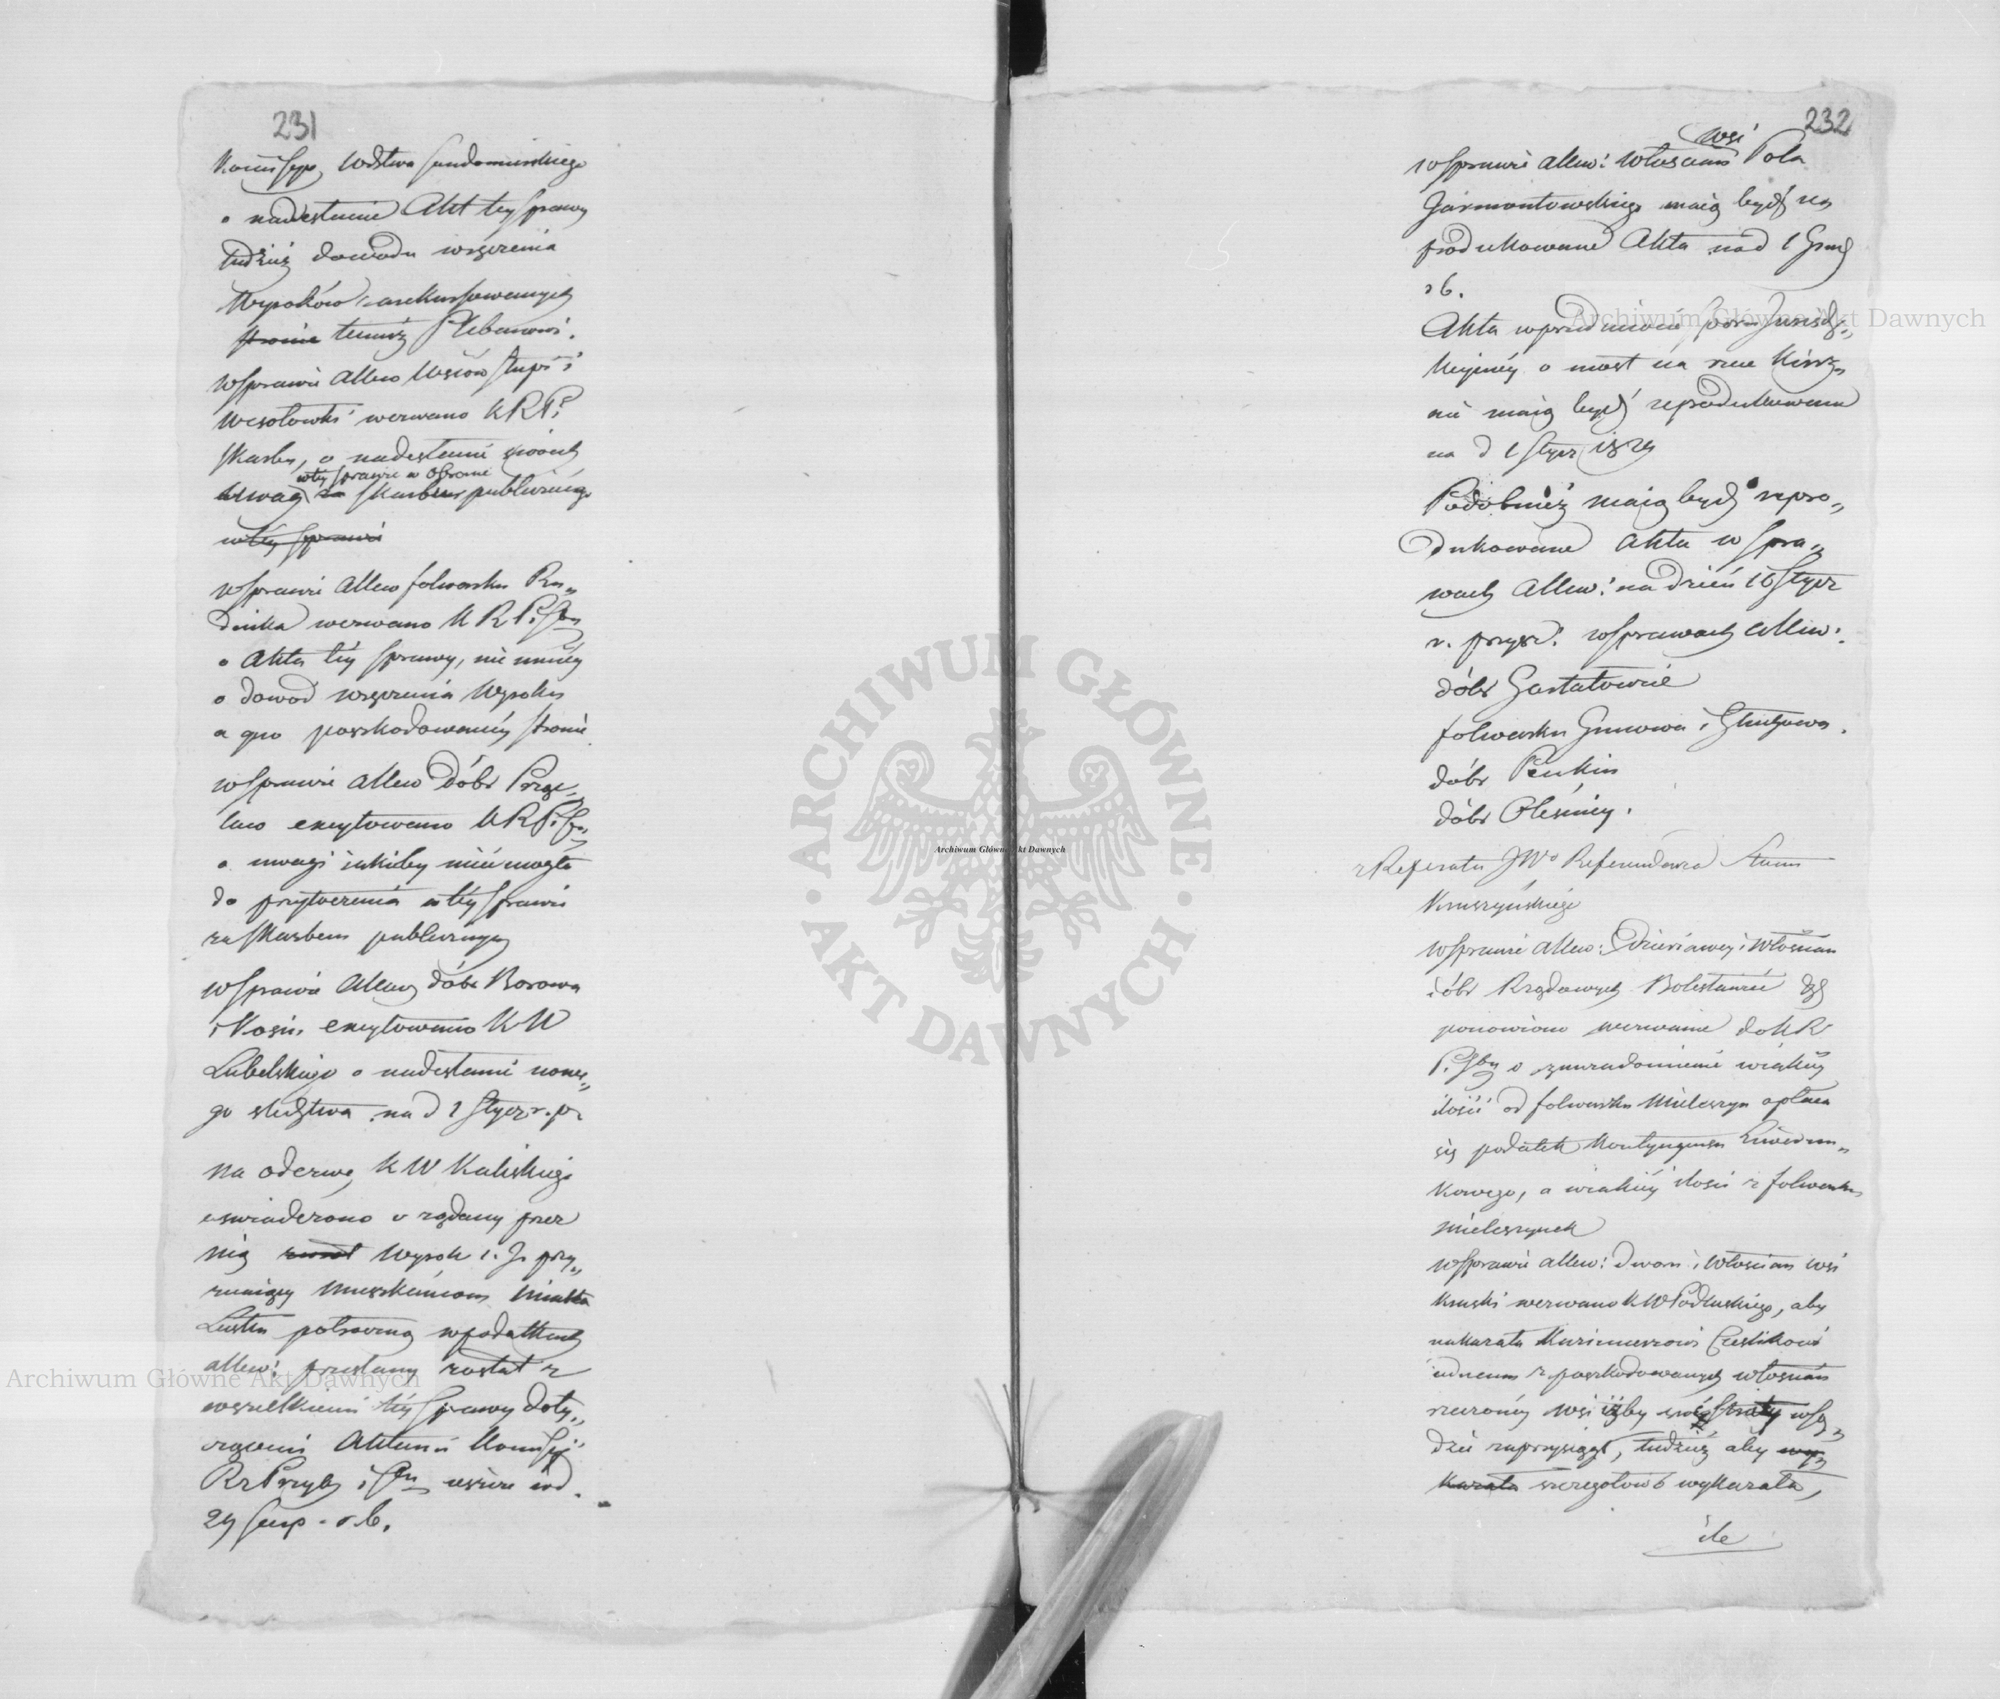 231
Kommissyę Wdztwa Sandomierskiego
o nadesłanie Akt tey sprawy
tudzież dowodu wręczenia
Wyroków zaskarżowanych
stronie temuż Plebanowi.
w Sprawie Allew Wsiów Słupi i
Wesołowki wezwano KRP i
Skarbu, o nadesłanie swoich
wtey sprawie w obronie
uwag za Skarbem publicznego
wtey sprawie
w Sprawie Allew folwarku Ru„
dnika wezwano K R P i Sbu
o Akta téy Sprawy, nie mniéy
o dowód wręczenia Wyroku
a quo poszkodowanéy stronie
w Sprawie Allew Dóbr Prze„
ław excytowano KRP i Sb„
o uwagi iakiby mieć mogła
do przytoczenia w téy Sprawie
za Skarbem publicznym
w Sprawie Allew dóbr Borowa
i Kosin excytowano KW
Lubelskiego o nadesłanie nowe„
go śledztwa na d 1 Stycz r. p.
Na odezwę KW Kaliskiego
oświadczono iż żądany przez
nią został Wyrok 1. J. przy„
znaiący Mieszkańcom Miasta
potrącenia w podatkach
allew: przesłany został z
wszelkiemi téy Sprawy doty„
czącemi Aktami Komissyi
Rz Przych i Sbu ieszcze pod
29 Sierp. r. b.
232
wsi
w Sprawie Allew: Włościan Pola
Jarmontowskiego maią bydź re
produkowane Akta na d 1 Grud
r b.
Akta w przedmiocie sporu Jurisdy„
kcyinéy o most na rzce
nie maią bydź reprodukowane
na d 1 Stycz 1829
Podobnież maią bydź repro„
dukowane Akta w Spra„
wach Allew: na dzień 10 Stycz
r. przysz. w sprawach Allew:
dóbr Gostatowice
folwarku Gumowa i
dóbr Penkin
dóbr Oleśnicy.
z Referatu JWo Referendarza Stanu
Kruszyńskiego
w Sprawie Allew: Dzierżawcy i Włościan
dóbr Rządowych Bolesławice
ponowiono wezwanie do KR
P. i Sbu o zawiadomienie w iakiéy
ilości od folwarku Mieleszyn opłaca
się podatek Kontyngensu Liwerun„
kowego, a w iakiéy ilości z folwarku
Mieleszynek
w Sprawie Allew: Dworu i Włościan wsi
Kruski wezwano KW Podlaskiego, aby
nakazała Kazimierzowi Cieslikowi
iednemu z poszkodowanych włościan
rzeczonéy wsi iżby swe straty wSą„
dzie zaprzysiągł, tudzież aby wy„
kazała szczegółowo wykazała,
ile
Archiwum Główne Akt Dawnych
Archiwum Główne Akt Dawnych
Archiwum Główne Akt Dawnych
ARCHIWUM GŁÓWNE · AKT DAWNYCH ·